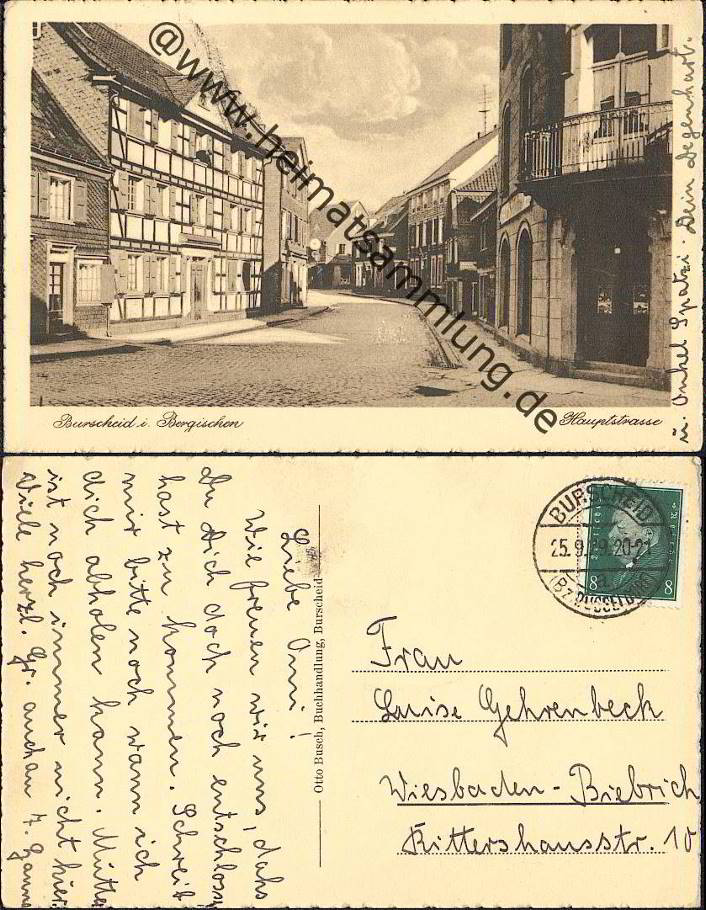 @www.heimatsammlung.de
Burscheid i. Bergischen
Hauptstrasse
u. Onkel Spatzi. Dein Degenhart.
Liebe Omi!
Wie freuen wir uns, dass
Du Dich doch noch entschlossen
hast zu kommen. Schreib
mir bitte noch wann ich
dich abholen kann. Mutter
ist noch immer nicht hier.
Viele herzl. Gr. auch an
Otto Busch, Buchhandlung, Burscheid
BURSCHEID
25.9.29.20-21
a
(BZ. DÜSSELDORF)
8 8
Frau
Luise Gehrenbeck
Wiesbaden-Biebrich
Rittershausstr. 10